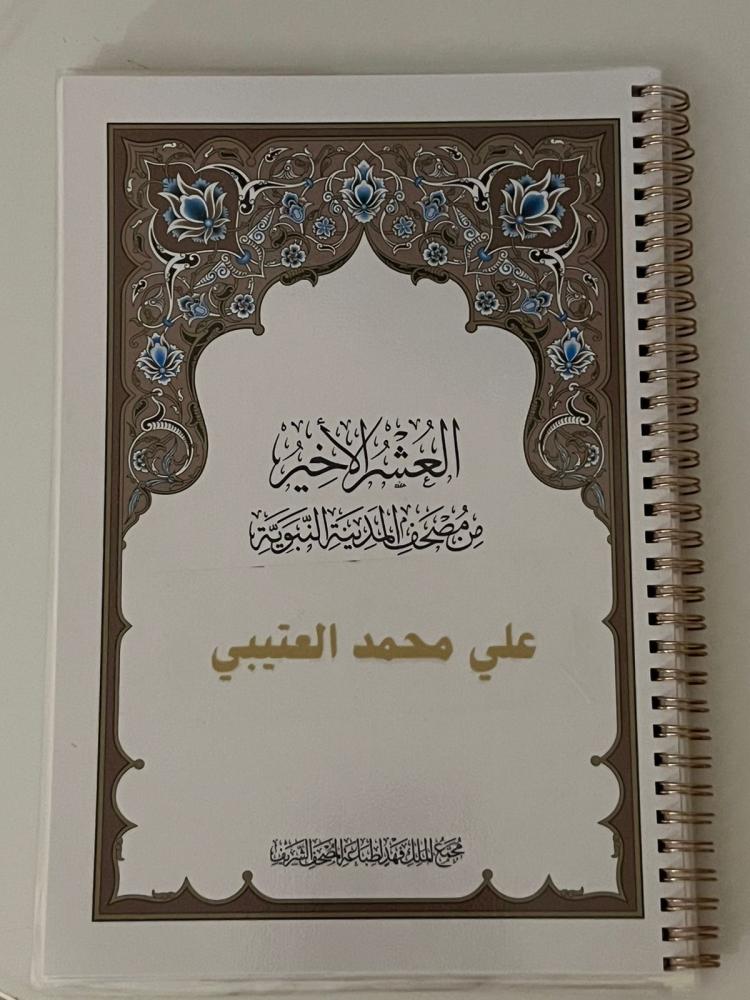 العُشْرُ الأَخِيرُ
مِن مُصْحَفِ المَدِينَةِ النَّبَوِيَّةِ
علي محمد العتيبي
مُجَمَّعُ المَلِكِ فَهْدٍ لِطِبَاعَةِ المُصْحَفِ الشَّرِيفِ